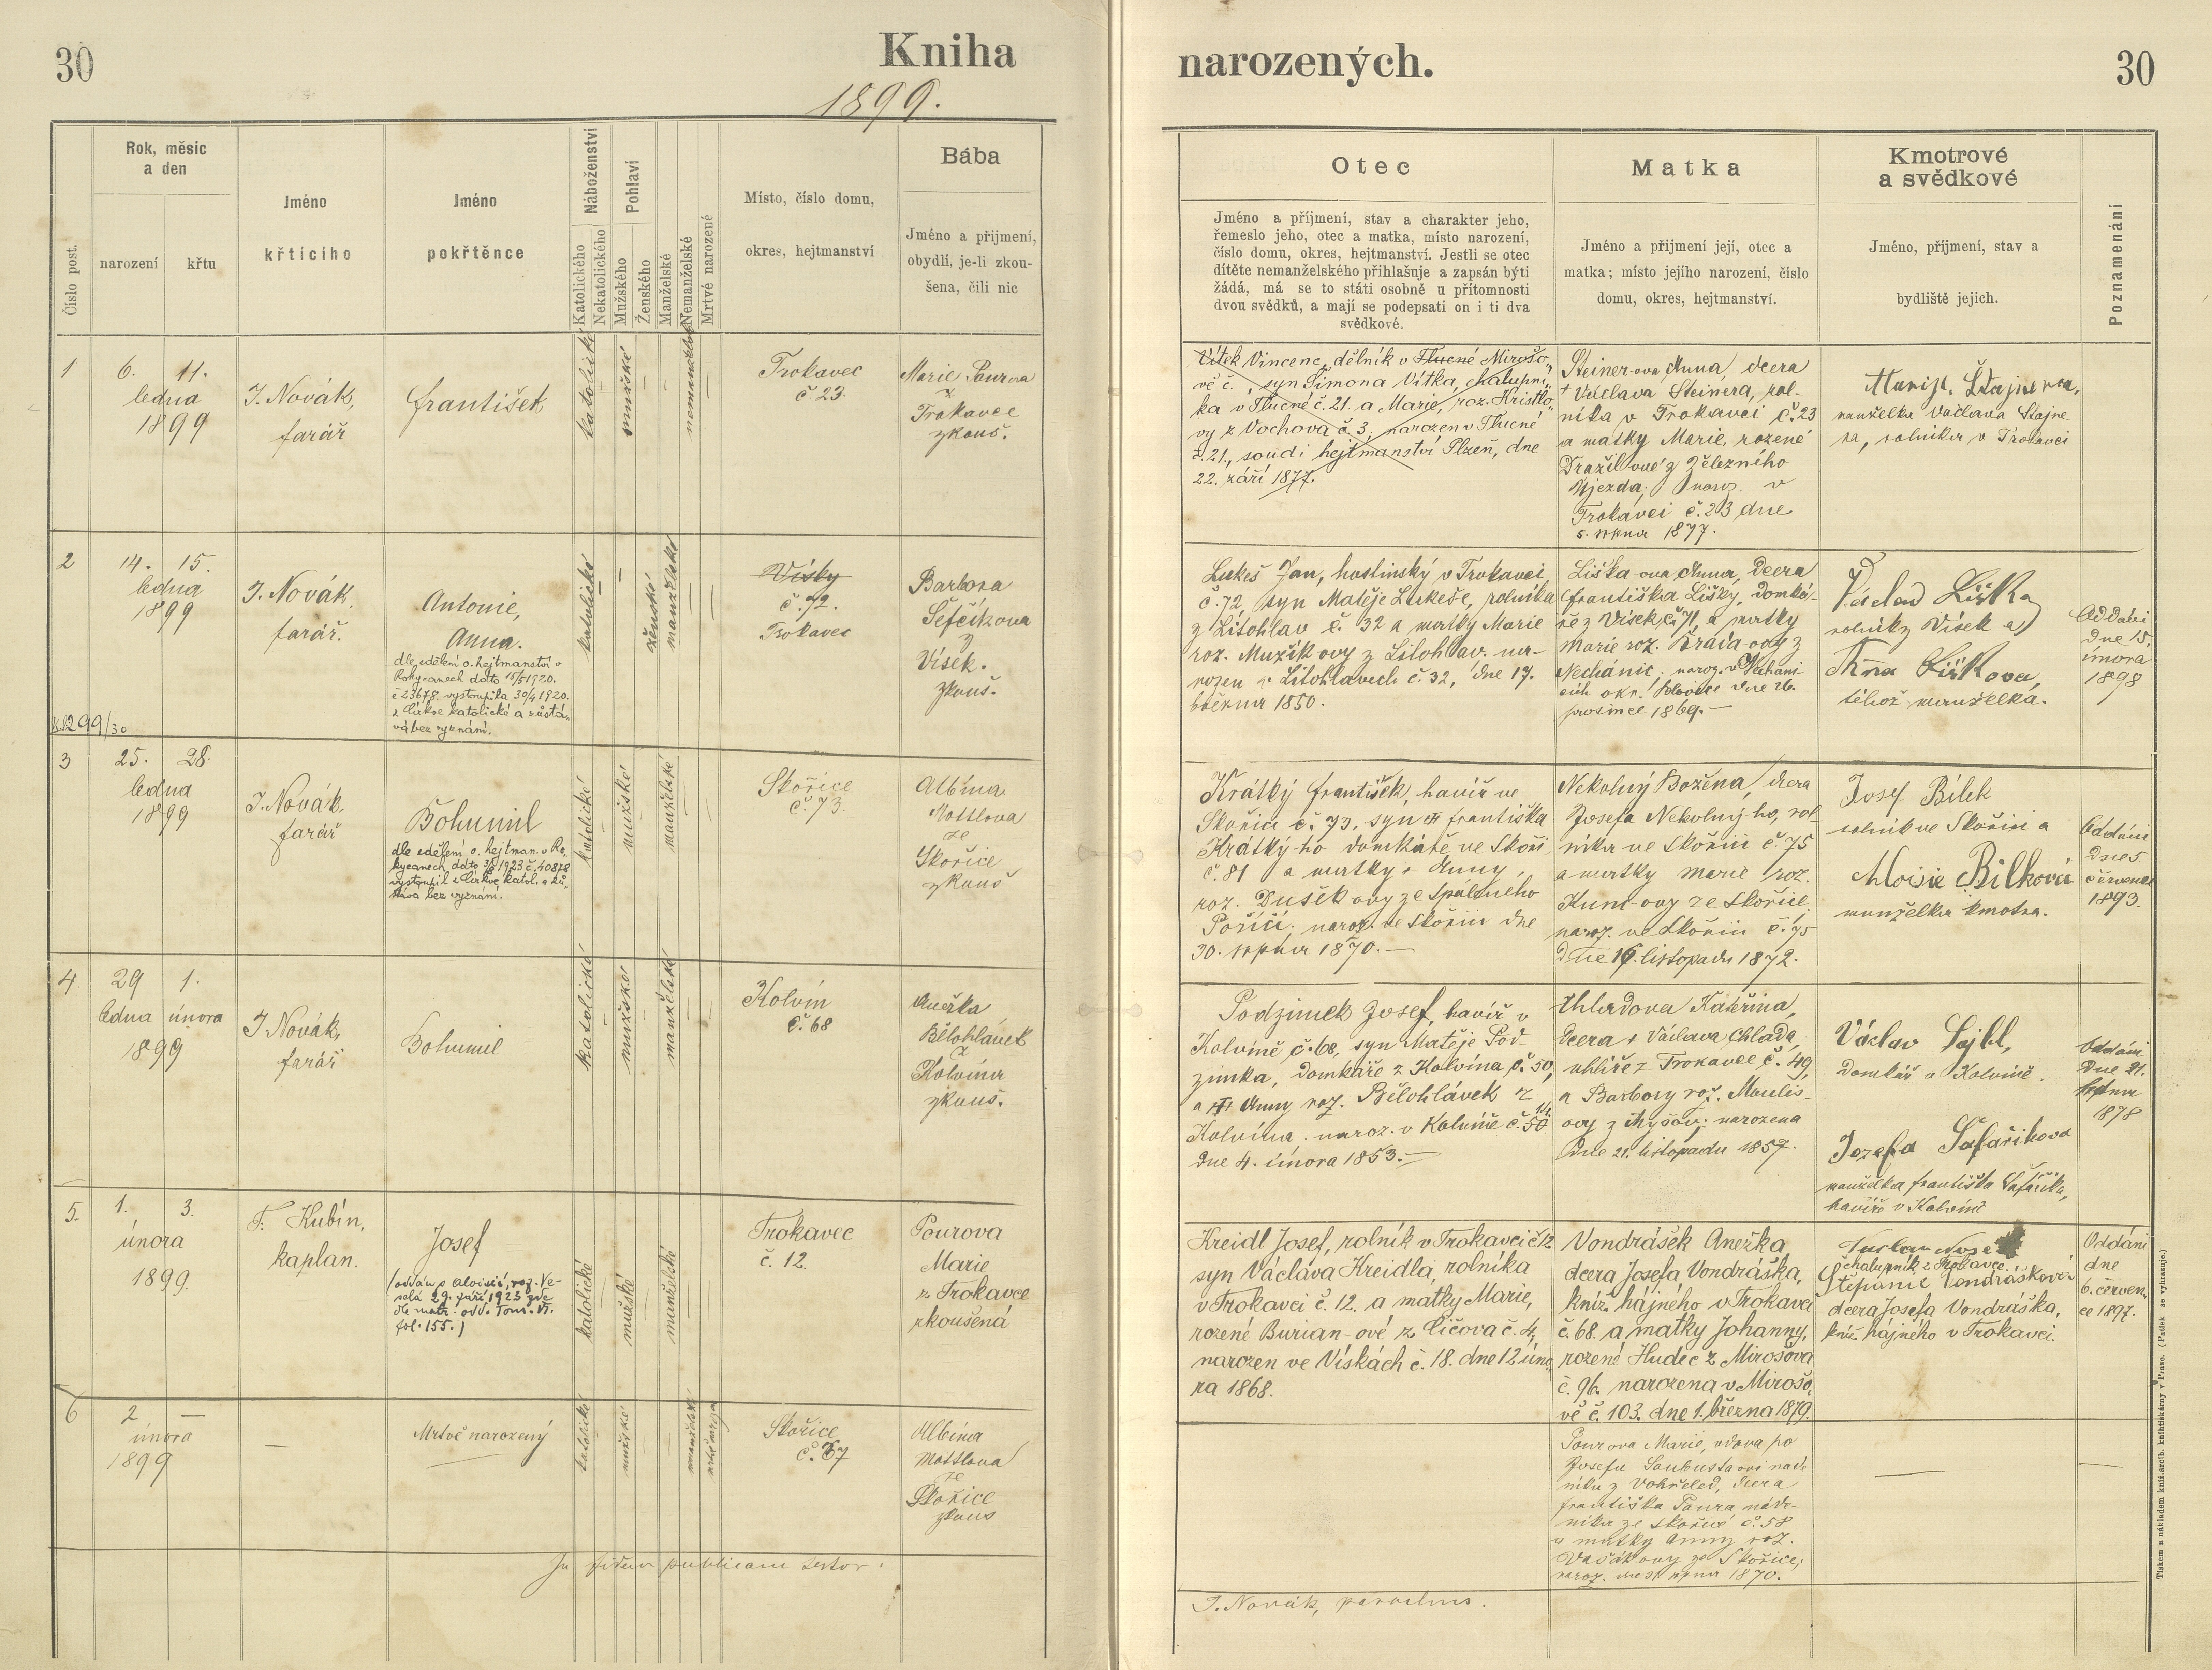 30
Kniha
1899.
Číslo post.
Rok, měsíc
a den
narození
křtu
Jméno
křticího
Jméno
pokřtěnce
Náboženství
Katolického
Nekatolického
Pohlaví
Mužského
Ženského
Manželské
Nemanželské
Mrtvé narozené
Místo, číslo domu,
okres, hejtmanství
Bába
Jméno a přijmení,
obydlí, je-li zkou-
šena, čili nic
1
6. 11.
ledna
1899
J. Novák,
farář
František
katolické
mužské
nemanželské
Trokavec
č. 23.
Marie Pourova
z
Trokavce
zkouš.
2
14. 15.
ledna
1899
J. Novák,
farář.
Antonie,
Anna.
dle sdělení o. hejtmanství v
Rokycanech dato 15/5 1920.
č 23678 vystoupila 30/4 1920.
z Církve katolické a zůstá-
vá bez vyznání.
299/30
katolické
ženské
manželské
Vísky
č. 72.
Trokavec
Barbora
Šefčíkova
z
Vísek.
zkouš.
3
25. 28.
ledna
1899
J. Novák,
farář
Bohumil
dle sdělení o. hejtman. v Ro-
kycanech, dato 1923 č. 40878
vystoupil z Církve katol. a zů-
stává bez vyznání.
katolické
mužské
manželské
Skořice
č. 73.
Albína
Mottlova
ze
Skořice
zkouš
4
29 1.
ledna února
1899
J. Novák,
farář
Bohumil
katolické
mužské
manželské
Kolvín
č. 68
Anežka
Bělohlávek
z
Kolvína
zkouš.
5.
1. 3.
února
1899.
F. Kubín,
kaplan.
Josef
(oddán s Aloisií, roz. Ve-
selá 29. září 1923 zde
dle matr. odd. Tom. VI.
fol. 155.)
katolické
mužské
manželské
Trokavec
č. 12.
Pourova
Marie
z Trokavce
zkoušená
6
2 —
února
1899
—
Mrtvě narozený
katolické
mužské
nemanželské
Skořice
č. 37
Albína
Mottlova
ze
Skořice
zkouš
In fidem publicam testor.
narozených.
30
Otec
Jméno a příjmení, stav a charakter jeho,
řemeslo jeho, otec a matka, místo narození,
číslo domu, okres, hejtmanství. Jestli se otec
dítěte nemanželského přihlašuje a zapsán býti
žádá, má se to státi osobně u přítomnosti
dvou svědků, a mají se podepsati on i ti dva
svědkové.
Matka
Jméno a přijmení její, otec a
matka; místo jejího narození, číslo
domu, okres, hejtmanství.
Kmotrové
a svědkové
Jméno, příjmení, stav a
bydliště jejich.
Poznamenání
Vítek Vincenc, dělník v Tlucné Mirošo-
vě č. , syn Šimona Vítka, chalupní-
ka v Tlucné č. 21. a Marie, roz. Kristlo-
vy z Vochova č. 3, narozen v Tlucné
č. 21., soud i hejtmanství Plzeň, dne
22. září 1877.
Steiner-ova Anna, dcera
† Václava Steinera, rol-
níka v Trokavci č. 23
a matky Marie, rozené
Dražil-ové z Železného
Újezda; naroz. v
Trokavci č. 23 dne
5. srpna 1877.
Marije Štajnerova,
manželka Václava Štajne
ra, rolníka v Trokavci
Lukeš Jan, hostinský v Trokavci
č. 72, syn Matěje Lukeše, rolníka
z Litohlav č. 32 a matky Marie
roz. Mužík-ovy z Litohlav. na-
rozen v Litohlavech č. 32, dne 17.
března 1850.
Liška-ova Anna, dcera
Františka Lišky, domká-
ře z Vísek č. 71, a matky
Marie roz. ovy z
Nechanic; naroz. v Nechani-
cích okr. Blovice dne 26.
prosince 1869.—
Václav Liška
rolník z Vísek a
Anna Liškova,
téhož manželka.
Oddáni
dne 15.
února
1898
Krátký František, havíř ve
Skořici č. 73, syn † Františka
Krátký-ho domkáře ve Skoři
č. 81 a matky † Anny,
roz. Dušek-ovy ze Spáleného
Poříčí; naroz. ve Skořici dne
30. srpna 1870.—
Nekolný Božena, dcera
Josefa Nekolný-ho, rol-
níka ve Skořici č. 75
a matky Marie roz.
Kuns-ovy ze Skořice,
naroz. ve Skořici č. 75
dne 16. listopadu 1872.
Josef Bílek
rolník ve Skořici a
Aloisie Bílková
manželka kmotra.
Oddáni
dne 5
července
1893.
Podzimek Josef, havíř v
Kolvíně č. 68, syn Matěje Pod-
zimka, domkáře z Kolvína č. 50,
a † Anny roz. Bělohlávek z
Kolvína. naroz. v Kolvíně č. 50
dne 4. února 1853.—
Chladova Kateřina,
dcera † Václava Chlada,
uhlíře z Trokavce č. 49,
a Barbory roz. Maulis-
ovy z Myšov; narozena
dne 21. listopadu 1857.
Václav Lajbl,
domkář v Kolvíně.
Jozefa Šafaříkova
manželka Františka Šafaříka,
havíře v Kolvíně
Oddáni
dne 21.
ledna
1878
Kreidl Josef, rolník v Trokavci č 12
syn Václava Kreidla, rolníka
v Trokavci č. 12. a matky Marie,
rozené Burian-ové z Číčova č. 4,
narozen ve Vískách č. 18. dne 12 úno-
ra 1868.
Vondrášek Anežka
dcera Josefa Vondráška,
kníž. hájného v Trokavci
č. 68. a matky Johanny,
rozené Hudec z Mirošova
č. 96. narozena v Mirošo-
vě č. 103. dne 1. března 1879.
chalupník z Trokavce.
Štěpánie Vondráškova
dcera Josefa Vondráška,
kníž. hájného v Trokavci.
Oddáni
dne
6. červen-
ce 1897.
Pourova Marie, vdova po
Josefu nád-
níku z Vokřeled, dcera
Františka Poura nád-
níka ze Skořice č. 58
a matky Anny roz.
Vašák-ovy ze Skořice;
naroz. dne srpna 1870.
—
—
J. Novák, parochus.
Tiskem a nákladem kníž. arcib. knihtiskárny v Praze. (Patisk se vyhrazuje.)